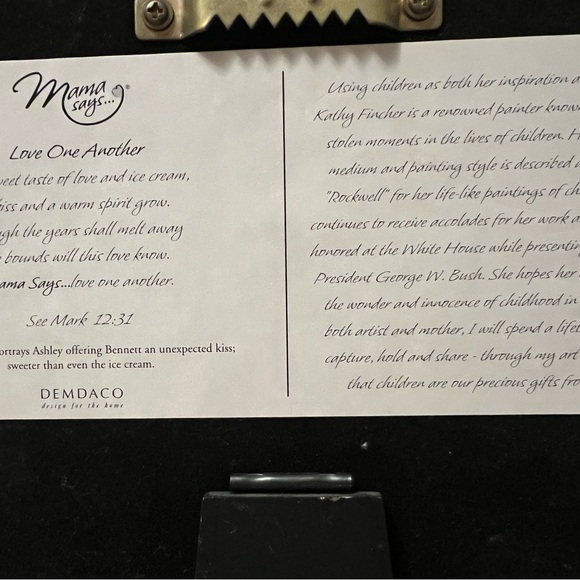 Mama
says...®
Love One Another
taste of love and ice cream,
and a warm spirit grow.
the years shall melt away
bounds will this love know.
Says...love one another.
See Mark 12:31
Ashley offering Bennett an unexpected kiss;
sweeter than even the ice cream.
DEMDACO
design for the home
Using children as both her inspiration
Kathy Fincher is a renowned painter
stolen moments in the lives of children.
medium and painting style is described
"Rockwell" for her life-like paintings of
continues to receive accolades for her work
honored at the White House while
President George W. Bush. She hopes her
the wonder and innocence of childhood in
both artist and mother, I will spend a
capture, hold and share - through my art
that children are our precious gifts